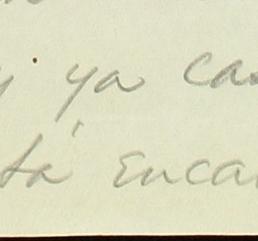 y ya cas
tá encar